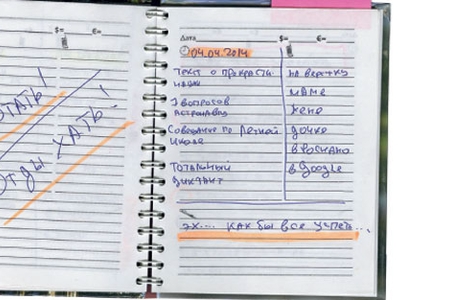 $= €=
ТАТЬ!
ОТДЫХАТЬ!
Дата $= €=
04.04.2014
Текст о прокрасти-
нации
7 вопросов
астронавту
Совещание по Летней
школе
Тотальный
диктант
на верстку
маме
жене
дочке
в Google
Эх.... как бы все успеть...